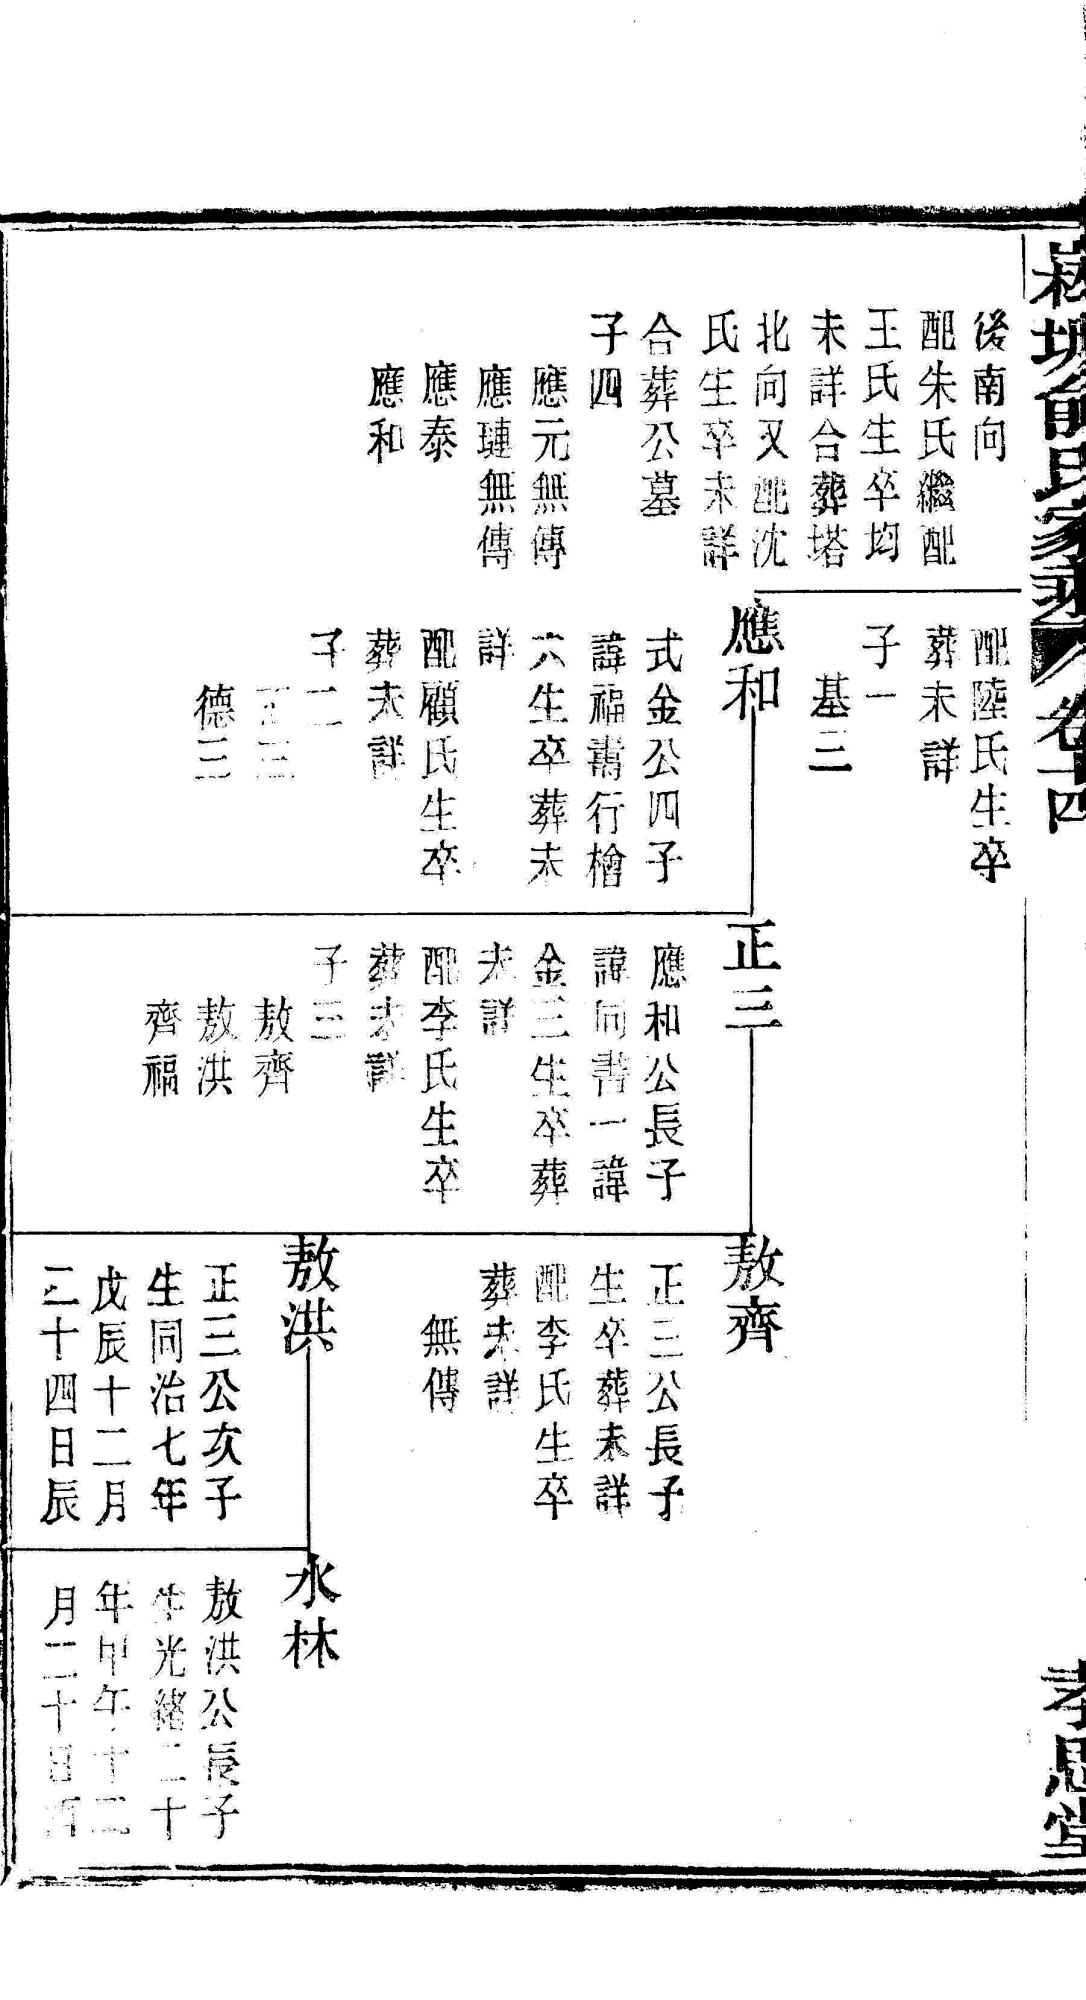 俞氏家乘
卷十四
孝思堂
後南向
配朱氏繼配
王氏生卒均
未詳合葬塔
北向又配沈
氏生卒未詳
合葬公墓
子四
應元無傳
應璉無傳
應泰
應和
配陸氏生卒
葬未詳
子一
基三
應和
式金公四子
諱福壽行檜
六生卒葬未
詳
配顧氏生卒
葬未詳
子二
正三
德三
正三
應和公長子
諱同書一諱
金三生卒葬
未詳
配李氏生卒
葬未詳
子三
敖齊
敖洪
齊福
敖齊
正三公長子
生卒葬未詳
配李氏生卒
葬未詳
無傳
敖洪
正三公次子
生同治七年
戊辰十二月
二十四日辰
永林
敖洪公長子
生光緒二十
年甲午十二
月二十日酉